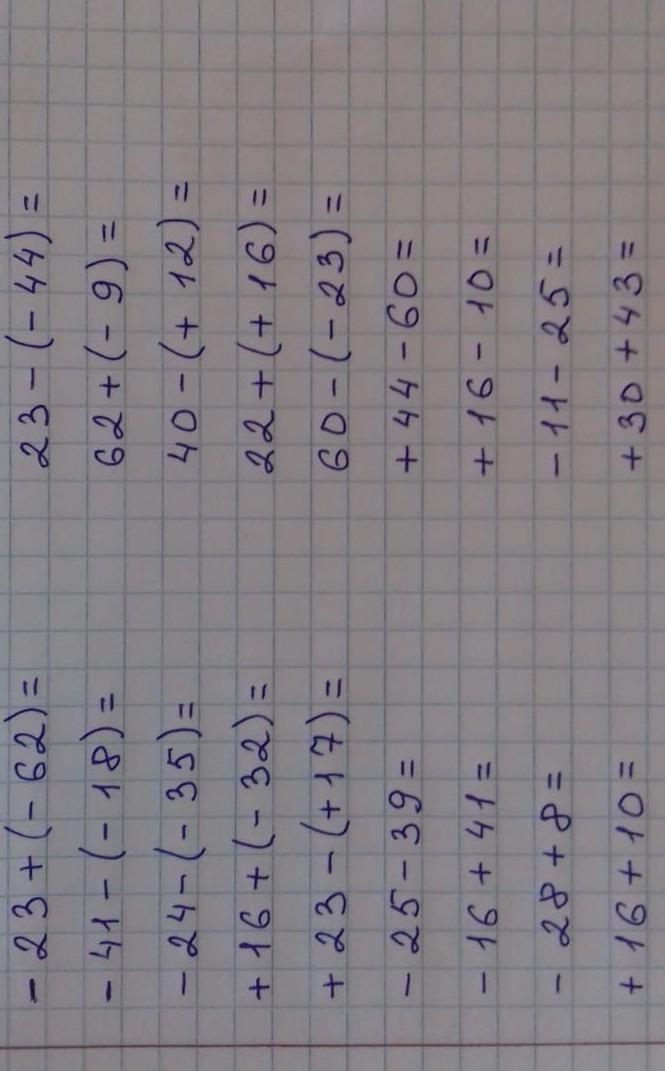 - 23 + (- 62) = 23 - (- 44) =
- 41 - (- 18) = 62 + (- 9) =
- 24 - (- 35) = 40 - (+ 12) =
+ 16 + (- 32) = 22 + (+ 16) =
+ 23 - (+ 17) = 60 - (- 23) =
- 25 - 39 = + 44 - 60 =
- 16 + 41 = + 16 - 10 =
- 28 + 8 = - 11 - 25 =
+ 16 + 10 = + 30 + 43 =